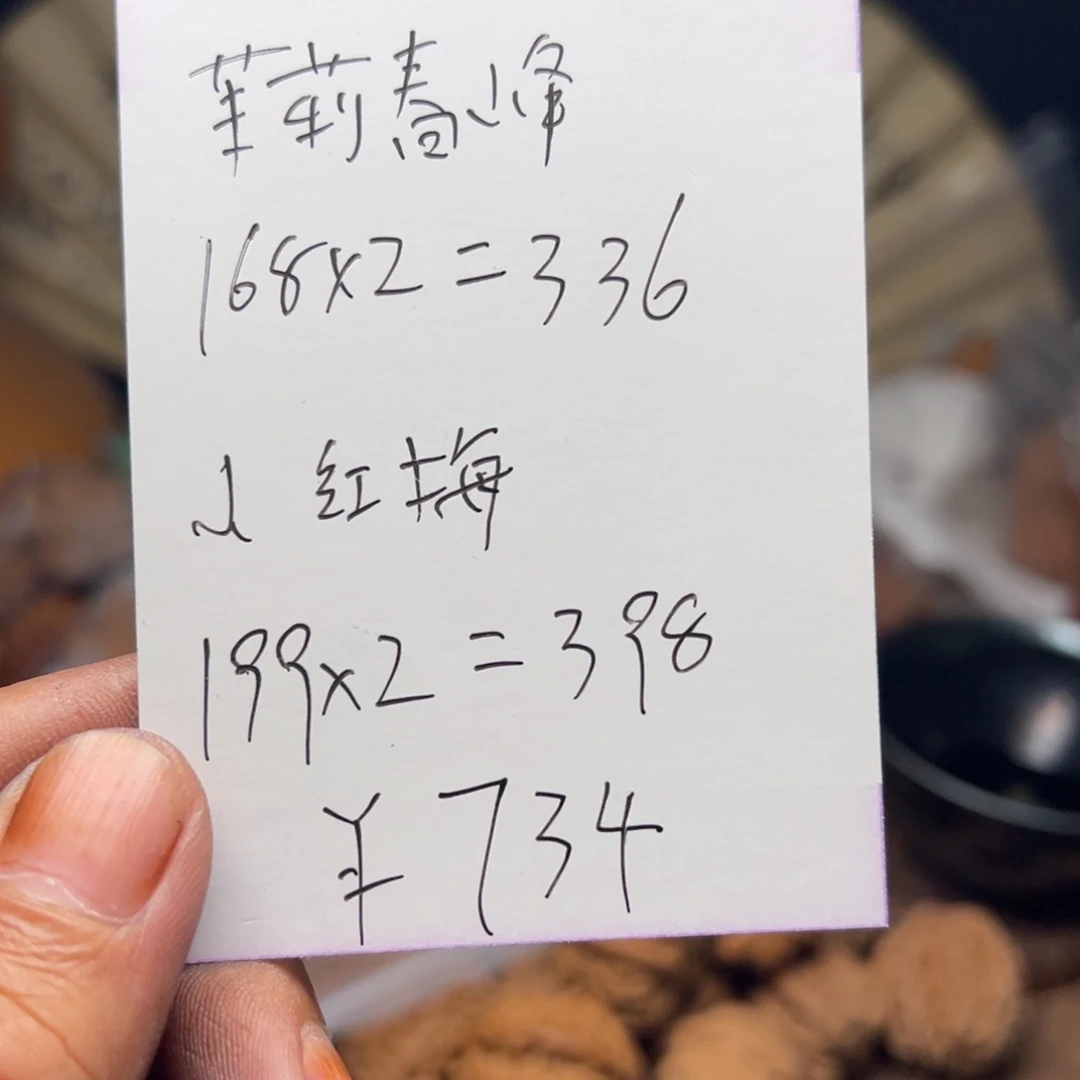 茉莉春峰
168×2=336
红梅
199×2=398
¥734